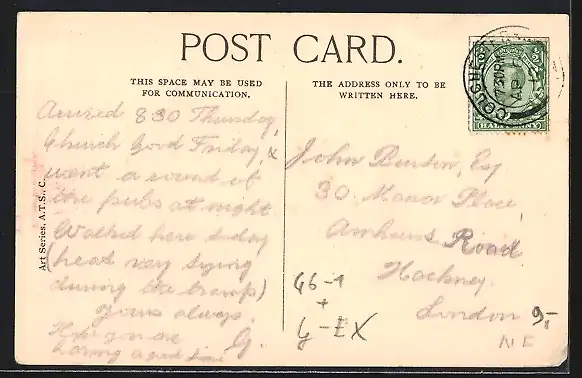 POST CARD.
THIS SPACE MAY BE USED
FOR COMMUNICATION.
THE ADDRESS ONLY TO BE
WRITTEN HERE.
Arrived 8 30 Thursday,
Church Good Friday, &
went a round of
the pubs at night.
Walked here today
(heat very trying
during the tramp)
Yours always.
G.
Hope you are
having a good time
Art Series, A.T.S., C.
John Burton, Esq
30. Manor Place,
Amhurst Road
Hackney.
London
N E
46-1
+
9,-
COLCHESTER
7 30 PM
HALFPENNY